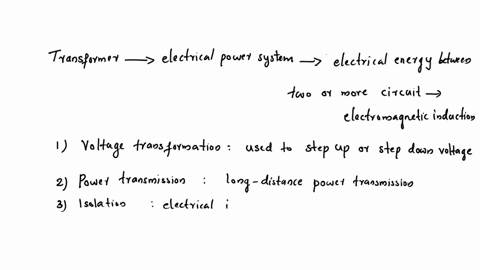 Transformer → electrical power system → electrical energy between
two or more circuit →
electromagnetic induction
1) Voltage transformation : used to step up or step down voltage
2) Power transmission : long-distance power transmission
3) Isolation : electrical i